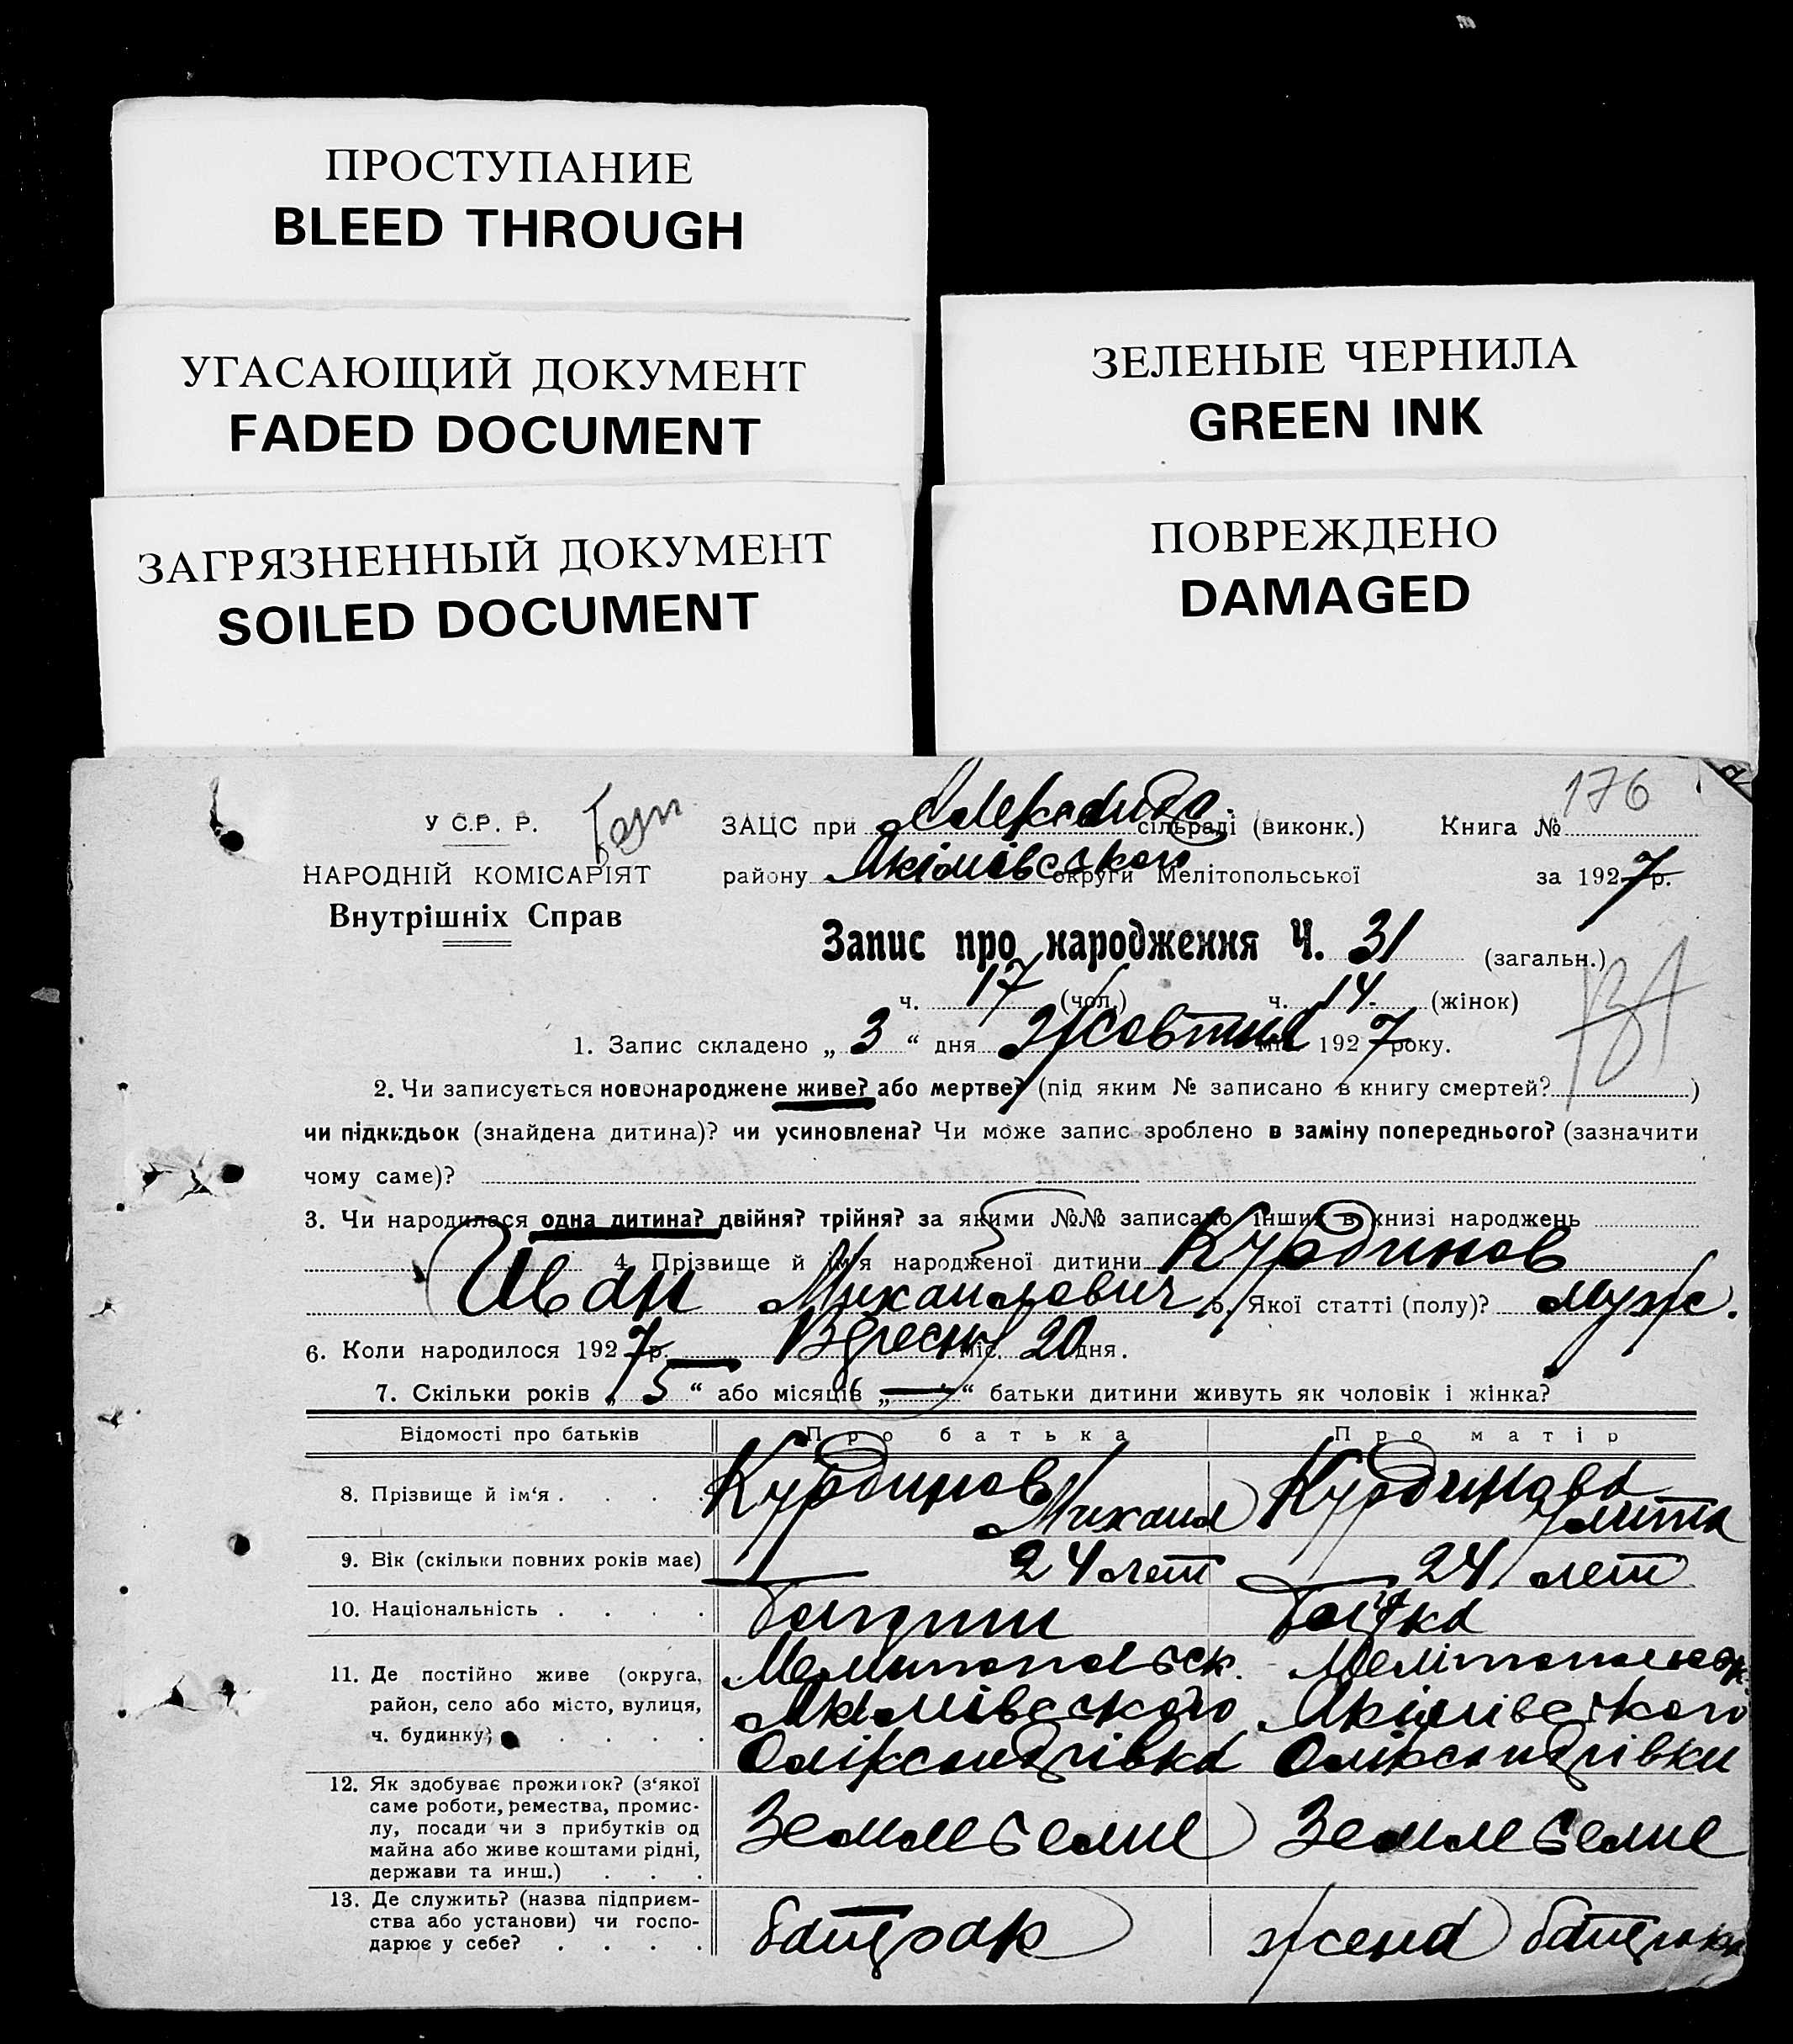 ПРОСТУПАНИЕ
BLEED THROUGH
УГАСАЮЩИЙ ДОКУМЕНТ
FADED DOCUMENT
ЗАГРЯЗНЕННЫЙ ДОКУМЕНТ
SOILED DOCUMENT
ЗЕЛЕНЫЕ ЧЕРНИЛА
GREEN INK
ПОВРЕЖДЕНО
DAMAGED
У С.Р. Р.
НАРОДНІЙ КОМІСАРІЯТ
Внутрішніх Справ
176
ЗАЦС при сільраді (виконк.) Книга №
району Якімівського округи Мелітопольської за 1927 р.
Запис про народження Ч. 31 (загальн.)
ч. 17 (чол.) ч. 14 (жінок)
131
1. Запис складено „ 3 “ дня Жовтня міс. 1927 року.
2. Чи записується новонароджене живе? або мертве? (під яким № записано в книгу смертей? )
чи підкидьок (знайдена дитина)? чи усиновлена? Чи може запис зроблено в заміну попереднього? (зазначити
чому саме)?
3. Чи народилася одна дитина? двійня? трійня? за якими №№ записано інших в книзі народжень
4. Прізвище й ім'я народженої дитини Курдинов
Иван Михаилович 5. Якої статті (полу)? муж.
6. Коли народилося 1927 р. Вересня міс. 20 дня.
7. Скільки років „ 5 “ або місяців „ — “ батьки дитини живуть як чоловік і жінка?
Відомості про батьків Про батька Про матір
8. Прізвище й ім'я . . . . Курдинов Михаил Курдинова Улита
9. Вік (скільки повних років має) 24 лет 24 лет
10. Національність . . . .
11. Де постійно живе (округа, Мелитопольск. Мелітопольськ.
район, село або місто, вулиця, Якимівського Якімівського
ч. будинку) . . . . Оліксандрівка Оліксандрівки
12. Як здобуває прожиток? (з'якої
саме роботи, ремества, промис-
лу, посади чи з прибутків од
майна або живе коштами рідні,
держави та инш.) . . .
Земледелие Земледелие
13. Де служить? (назва підприєм-
ства або установи) чи госпо-
дарює у себе? . . . .
батрак жена батрака